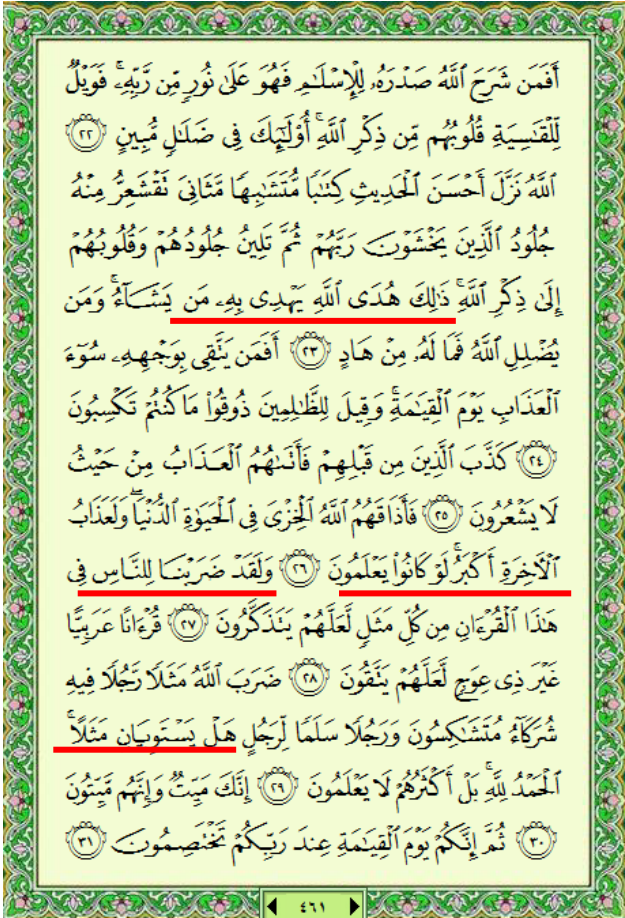 أَفَمَن شَرَحَ ٱللَّهُ صَدْرَهُۥ لِلْإِسْلَٰمِ فَهُوَ عَلَىٰ نُورٍ مِّن رَّبِّهِۦ ۚ فَوَيْلٌ
لِّلْقَٰسِيَةِ قُلُوبُهُم مِّن ذِكْرِ ٱللَّهِ ۚ أُو۟لَٰٓئِكَ فِى ضَلَٰلٍ مُّبِينٍ ٢٢
ٱللَّهُ نَزَّلَ أَحْسَنَ ٱلْحَدِيثِ كِتَٰبًا مُّتَشَٰبِهًا مَّثَانِىَ تَقْشَعِرُّ مِنْهُ
جُلُودُ ٱلَّذِينَ يَخْشَوْنَ رَبَّهُمْ ثُمَّ تَلِينُ جُلُودُهُمْ وَقُلُوبُهُمْ
إِلَىٰ ذِكْرِ ٱللَّهِ ۚ ذَٰلِكَ هُدَى ٱللَّهِ يَهْدِى بِهِۦ مَن يَشَآءُ ۚ وَمَن
يُضْلِلِ ٱللَّهُ فَمَا لَهُۥ مِنْ هَادٍ ٢٣ أَفَمَن يَتَّقِى بِوَجْهِهِۦ سُوٓءَ
ٱلْعَذَابِ يَوْمَ ٱلْقِيَٰمَةِ ۚ وَقِيلَ لِلظَّٰلِمِينَ ذُوقُوا۟ مَا كُنتُمْ تَكْسِبُونَ
٢٤ كَذَّبَ ٱلَّذِينَ مِن قَبْلِهِمْ فَأَتَىٰهُمُ ٱلْعَذَابُ مِنْ حَيْثُ
لَا يَشْعُرُونَ ٢٥ فَأَذَاقَهُمُ ٱللَّهُ ٱلْخِزْىَ فِى ٱلْحَيَوٰةِ ٱلدُّنْيَا ۖ وَلَعَذَابُ
ٱلْءَاخِرَةِ أَكْبَرُ ۚ لَوْ كَانُوا۟ يَعْلَمُونَ ٢٦ وَلَقَدْ ضَرَبْنَا لِلنَّاسِ فِى
هَٰذَا ٱلْقُرْءَانِ مِن كُلِّ مَثَلٍ لَّعَلَّهُمْ يَتَذَكَّرُونَ ٢٧ قُرْءَانًا عَرَبِيًّا
غَيْرَ ذِى عِوَجٍ لَّعَلَّهُمْ يَتَّقُونَ ٢٨ ضَرَبَ ٱللَّهُ مَثَلًا رَّجُلًا فِيهِ
شُرَكَآءُ مُتَشَٰكِسُونَ وَرَجُلًا سَلَمًا لِّرَجُلٍ هَلْ يَسْتَوِيَانِ مَثَلًا ۚ
ٱلْحَمْدُ لِلَّهِ ۚ بَلْ أَكْثَرُهُمْ لَا يَعْلَمُونَ ٢٩ إِنَّكَ مَيِّتٌ وَإِنَّهُم مَّيِّتُونَ
٣٠ ثُمَّ إِنَّكُمْ يَوْمَ ٱلْقِيَٰمَةِ عِندَ رَبِّكُمْ تَخْتَصِمُونَ ٣١
٤٦١